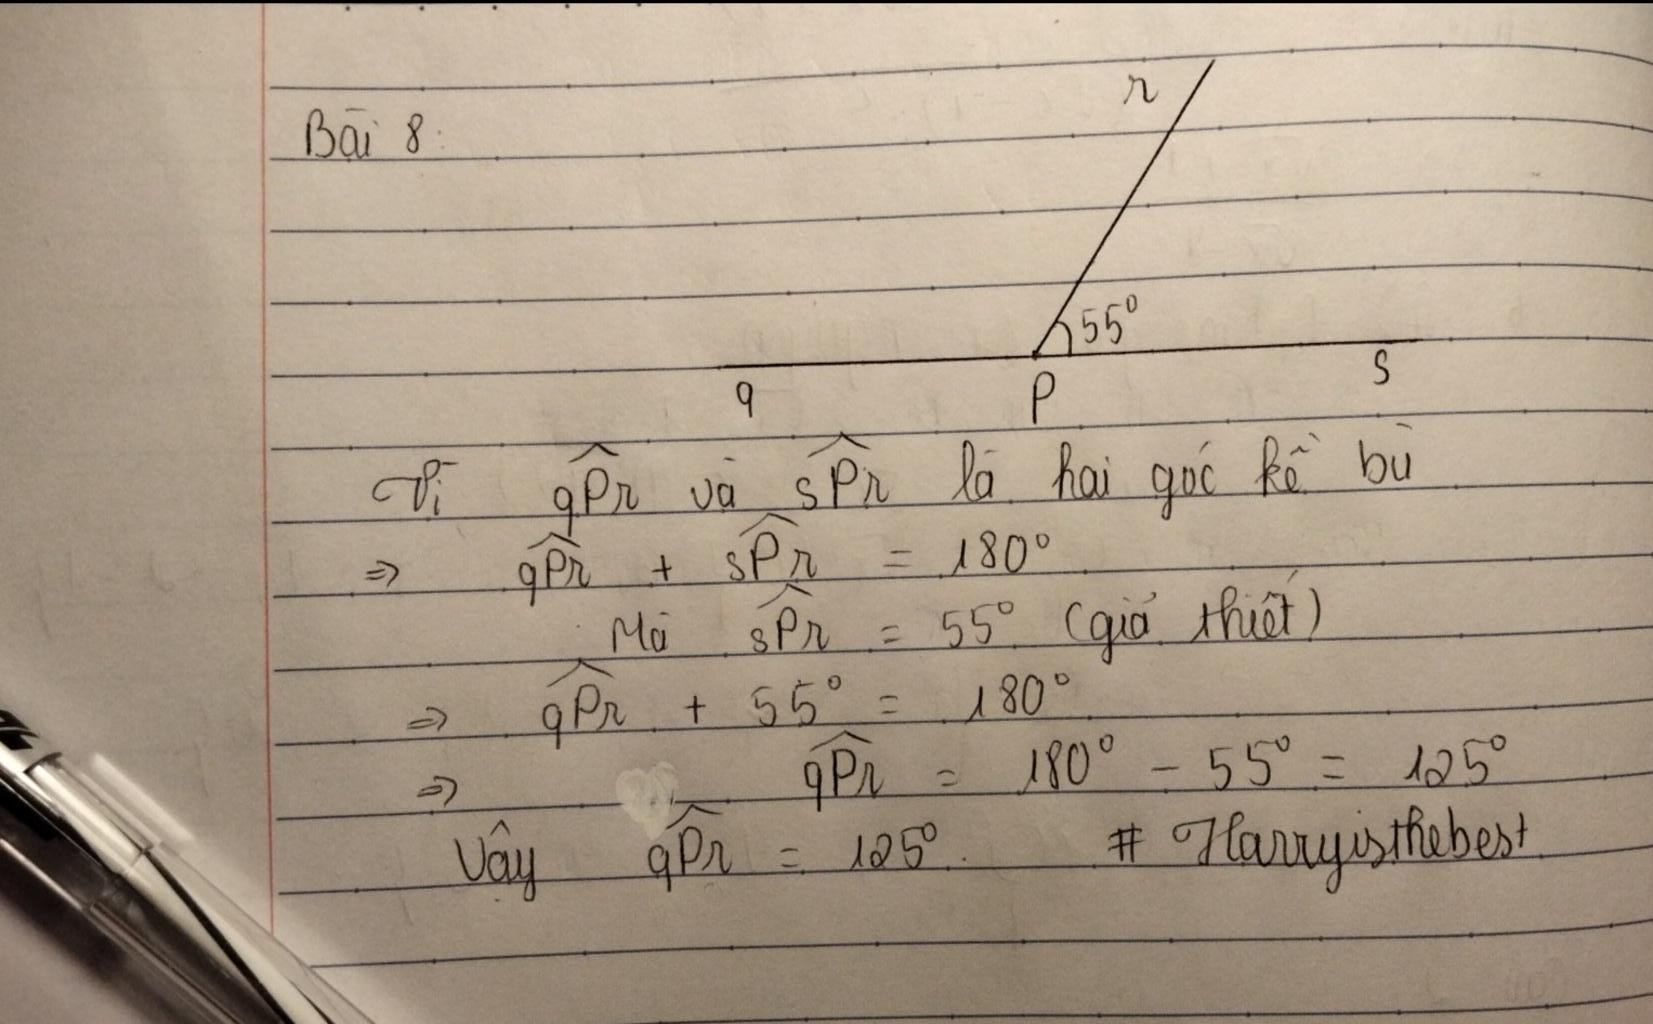 Bài 8:
r
55°
q P s
Vì qPr và sPr là hai góc kề bù
⇒ qPr + sPr = 180°
Mà sPr = 55° (giả thiết)
⇒ qPr + 55° = 180°
⇒ qPr = 180° - 55° = 125°
Vậy qPr = 125°. # Harryisthebest